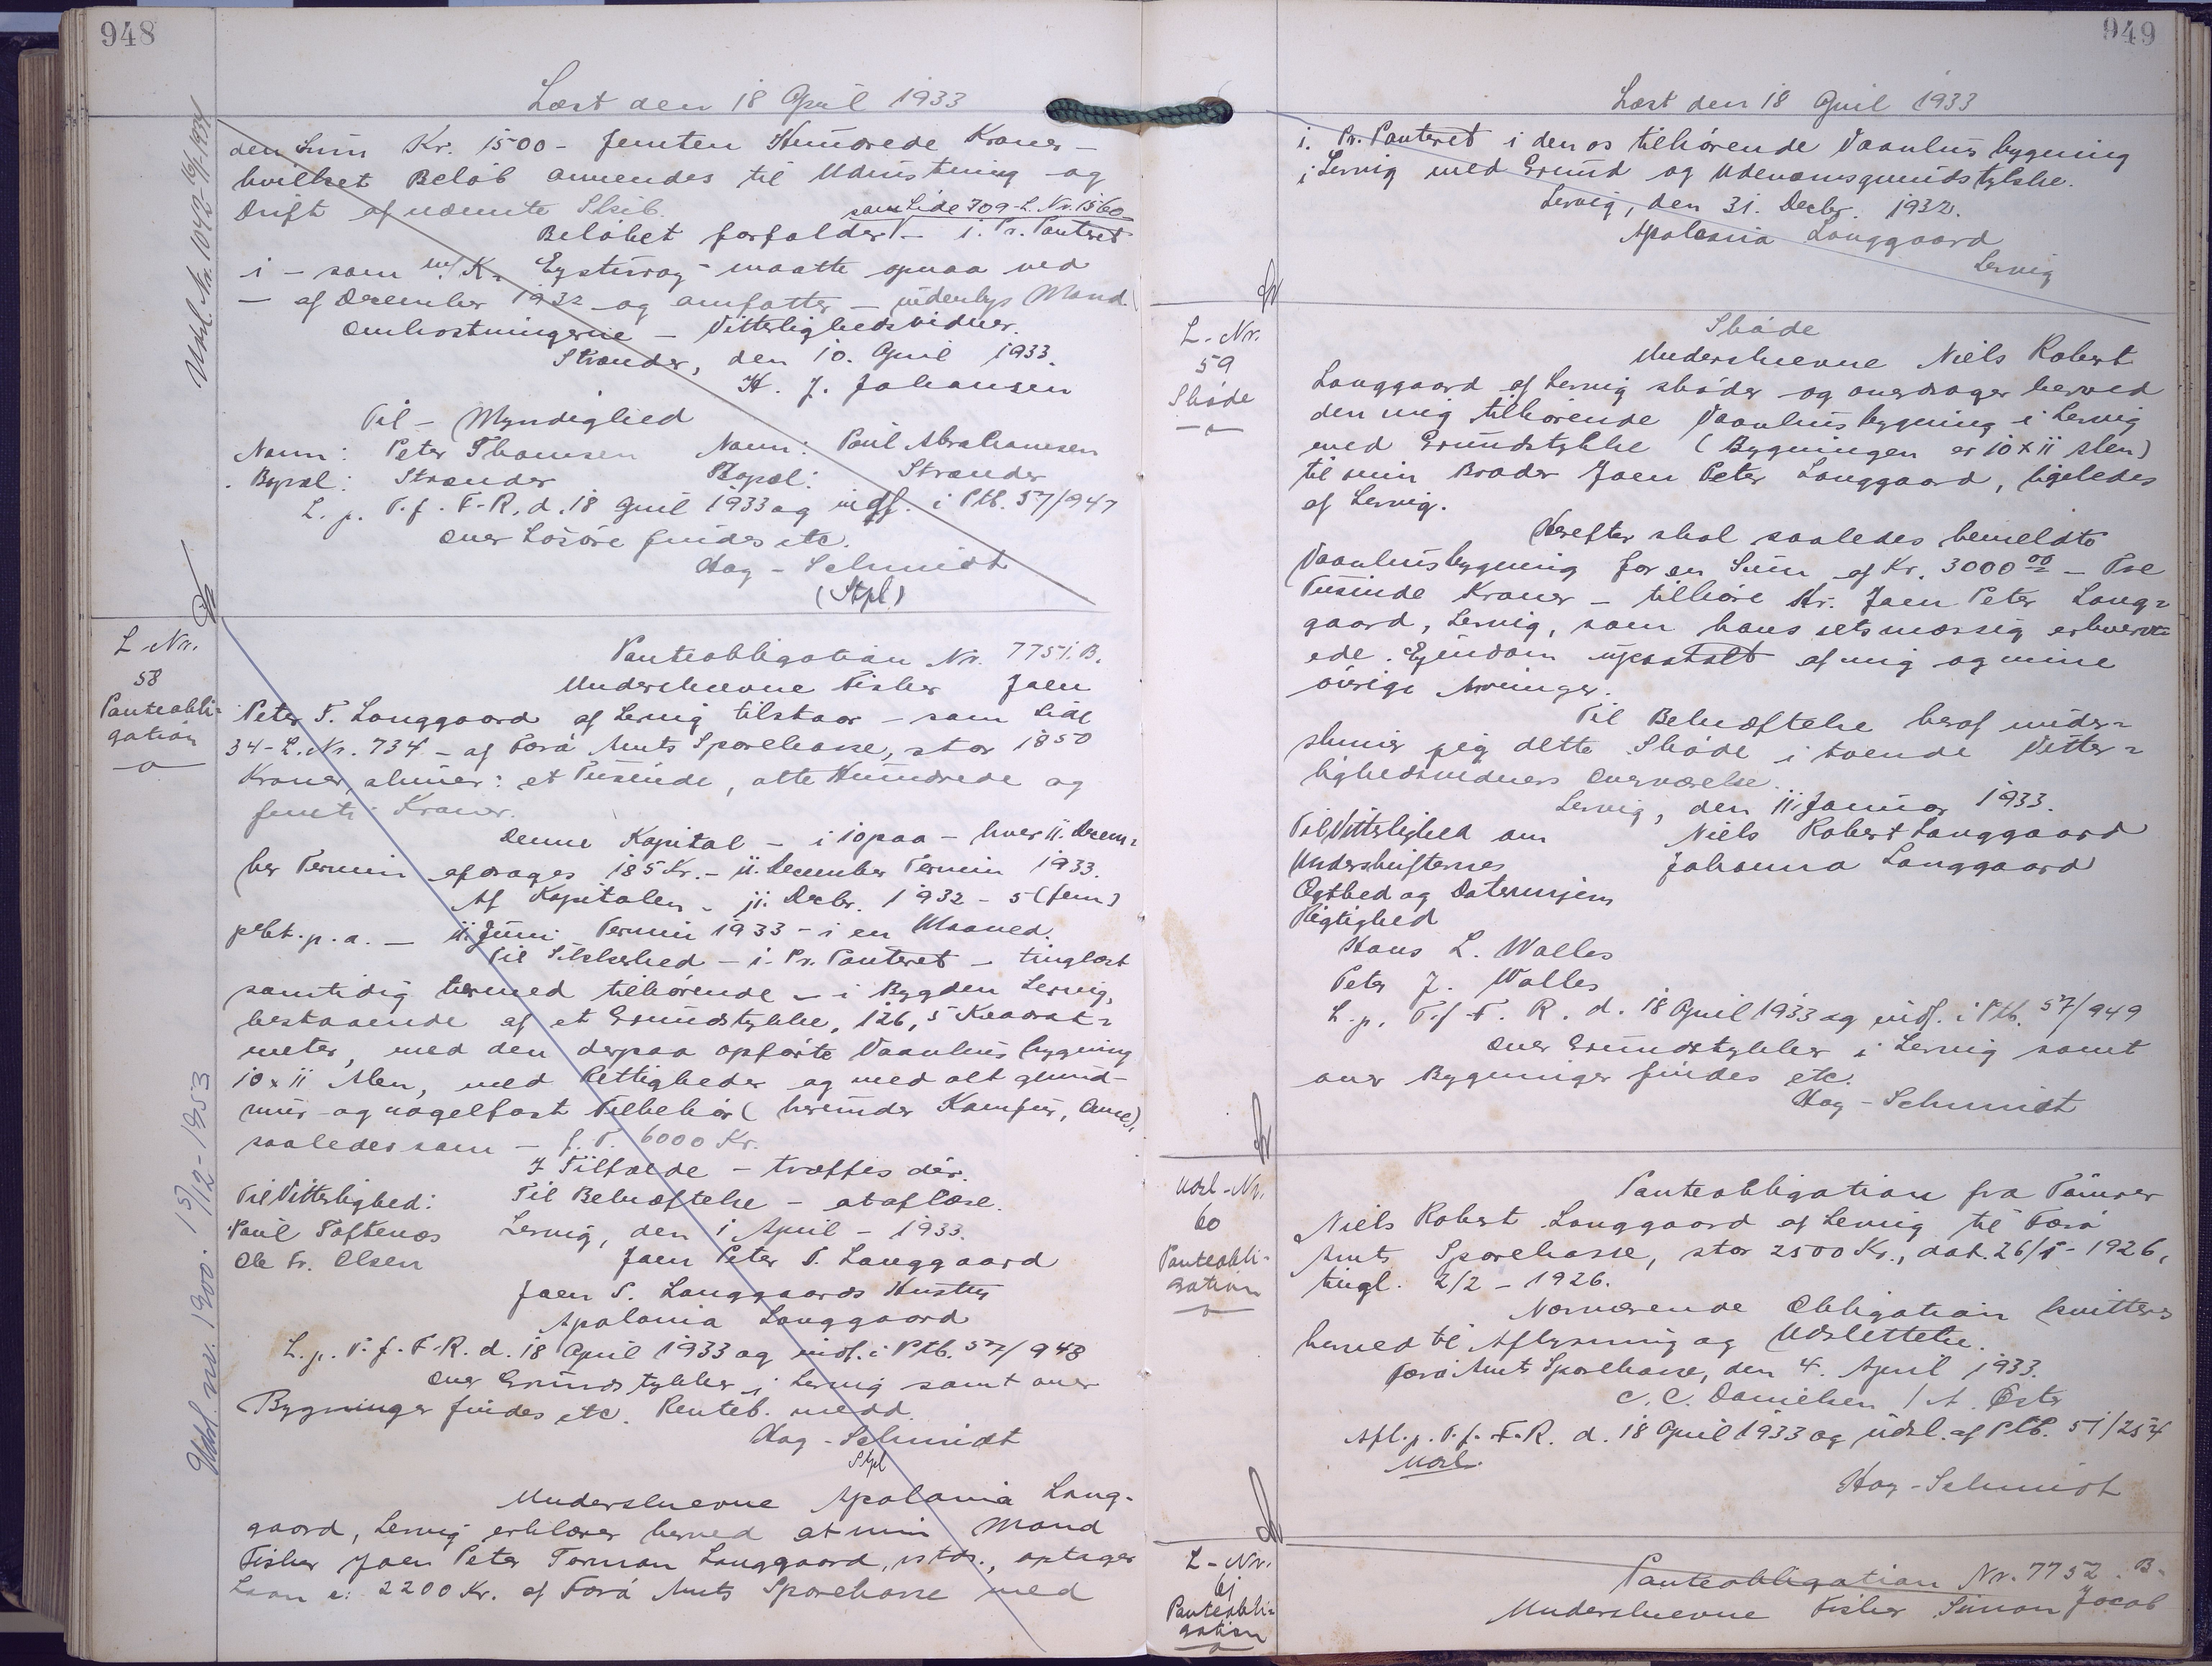 948
Læst den 18 April 1933
den Sum Kr. 1500 - femten Hundrede Kroner -
hvilket Beløb anvendes til Udrustning og
Drift af nævnte Skib.
som Side 709 - L. Nr. 1560
Beløbet forfalder - i. Pr. Panteret
i - som m/K. "Eysturoy" maatte opnaa ved
- af December 1932 og omfatter - indenbys Mand.
Omkostningerne - Vitterlighedsvidner.
Strænder, den 10. April 1933.
H. J. Johansen
Til - Myndighed
Navn: Peter Thomsen Navn: Poul Abrahamsen
Bopæl: Strænder Bopæl: Strænder
L. p. T. f. F. R. d. 18 April 1933 og indf. i Ptb. 57/947
Over Løsøre findes etc.
Hag - Schmidt
(Stpl)
Udsl. Nr. 1092
L. Nr.
58
Panteobli-
gation
Panteobligation Nr. 7751. B.
Underskrevne Fisker Joen
Peter T. Langgaard af Lervig tilstaar - som Side
34 - L. Nr. 734 - af Færø Amts Sparekasse, stor 1850
Kroner, skriver: et Tusinde, otte Hundrede og
femti Kroner.
Denne Kapital - i 10 paa - hver 11. Decem-
ber Termin afdrages 185 Kr. - 11. December Termin 1933.
Af Kapitalen - 11. Decbr. 1932 - 5 (fem)
pCt. p. a. - 11. Juni Termin 1933 - i en Maaned.
Til Sikkerhed - i. Pr. Panteret - tinglæst
samtidig hermed tilhørende - i Bygden Lervig,
bestaaende af et Grundstykke, 126,5 Kvadrat-
meter, med den derpaa opførte Vaanhusbygning
10 x 11 Alen, med Rettigheder og med alt grund-
mur- og nagelfast Tilbehør (herunder Komfur, Ovne),
saaledes som - f. T. 6000 Kr.
I Tilfælde - træffes dér.
Til Vitterlighed: Til Bekræftelse - at aflæse.
Poul Toftenæs Lervig, den 1 April - 1933.
Ole Fr. Olsen Joen Peter T. Langgaard
Joen P. Langgaards Hustru
Apolonia Langgaard
L. p. T. f. F. R. d. 18 April 1933 og indf. i Ptb. 57/948
Over Grundstykker i Lervig samt over
Bygninger findes etc. Renteb. medd.
Hag - Schmidt
Stpl
Udsl. nr. 1900. 15/12 - 1953
Underskrevne Apolonia Lang-
gaard, Lervig erklærer herved at min Mand
Fisker Joen Peter Torman Langgaard, istds., optager
Laan c: 2200 Kr. af Færø Amts Sparekasse med
949
Læst den 18 April 1933
1. Pr. Panteret i den os tilhørende Vaanhusbygning
i Lervig med Grund og Udenomsgrundstykke.
Lervig, den 31. Decbr. 1932.
Apolonia Langgaard
Lervig
L. Nr.
59
Skøde
Skøde
Underskrevne Niels Robert
Langgaard af Lervig skøder og overdrager herved
den mig tilhørende Vaanhusbygning i Lervig
med Grundstykke (Bygningen er 10 x 11 Alen)
til min Broder Joen Peter Langgaard, ligeledes
af Lervig.
Herefter skal saaledes bemeldte
Vaanhusbygning for en Sum af Kr. 3000 00 - Tre
Tusinde Kroner - tilhøre Hr. Joen Peter Lang-
gaard, Lervig, som hans retsmæssig erhverv-
ede Ejendom upaatalt af mig og mine
øvrige Arvinger.
Til Bekræftelse heraf under-
skriver jeg dette Skøde i tvende Vitter-
lighedsvidners Overværelse.
Lervig, den 11 Januar 1933.
Til Vitterlighed om Niels Robert Langgaard
Underskrifternes Johanna Langgaard
Ægthed og Dateringens
Rigtighed
Hans L. Walles
Peter J. Walles
L. p. T. f. F. R. d. 18 April 1933 og indf. i Ptb. 57/949
Over Grundstykker i Lervig samt
over Bygninger findes etc.
Hag - Schmidt
Udsl. - Nr.
60
Panteobli-
gation
Panteobligation fra Tømrer
Niels Robert Langgaard af Lervig til Færø
Amts Sparekasse, stor 2500 Kr., dat. 26/1 - 1926,
tingl. 2/2 - 1926.
Nærværende Obligation kvitteres
herved til Aflysning og Udslettelse.
Færø Amts Sparekasse, den 4. April 1933.
C. C. Danielsen / A. Öster
Afl. p. T. f. F. R. d. 18 April 1933 og udsl. af Ptb. 51/254
Udsl.
Hag - Schmidt
L. - Nr.
61
Panteobli-
gation
Panteobligation Nr. 7752. B.
Underskrevne Fisker Simon Jacob